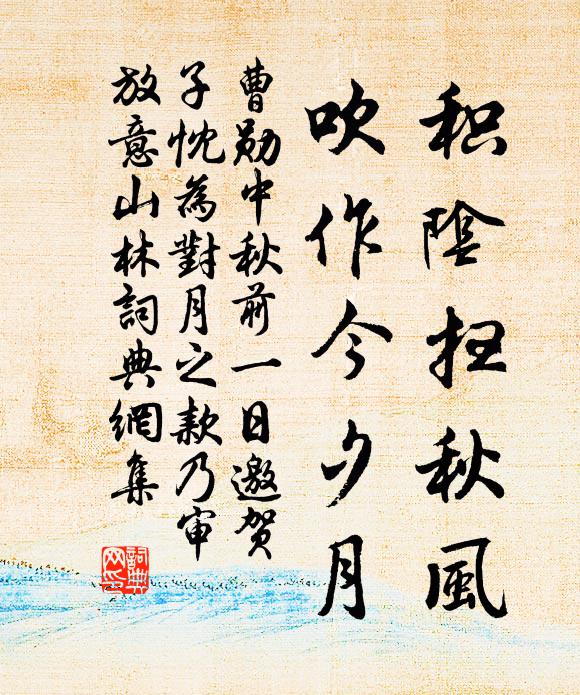 积陰扫秋風
吹作今夕月
曹勋中秋前一日邀贺
子忱為對月之款乃审
放意山林詞典網集
詞典
网